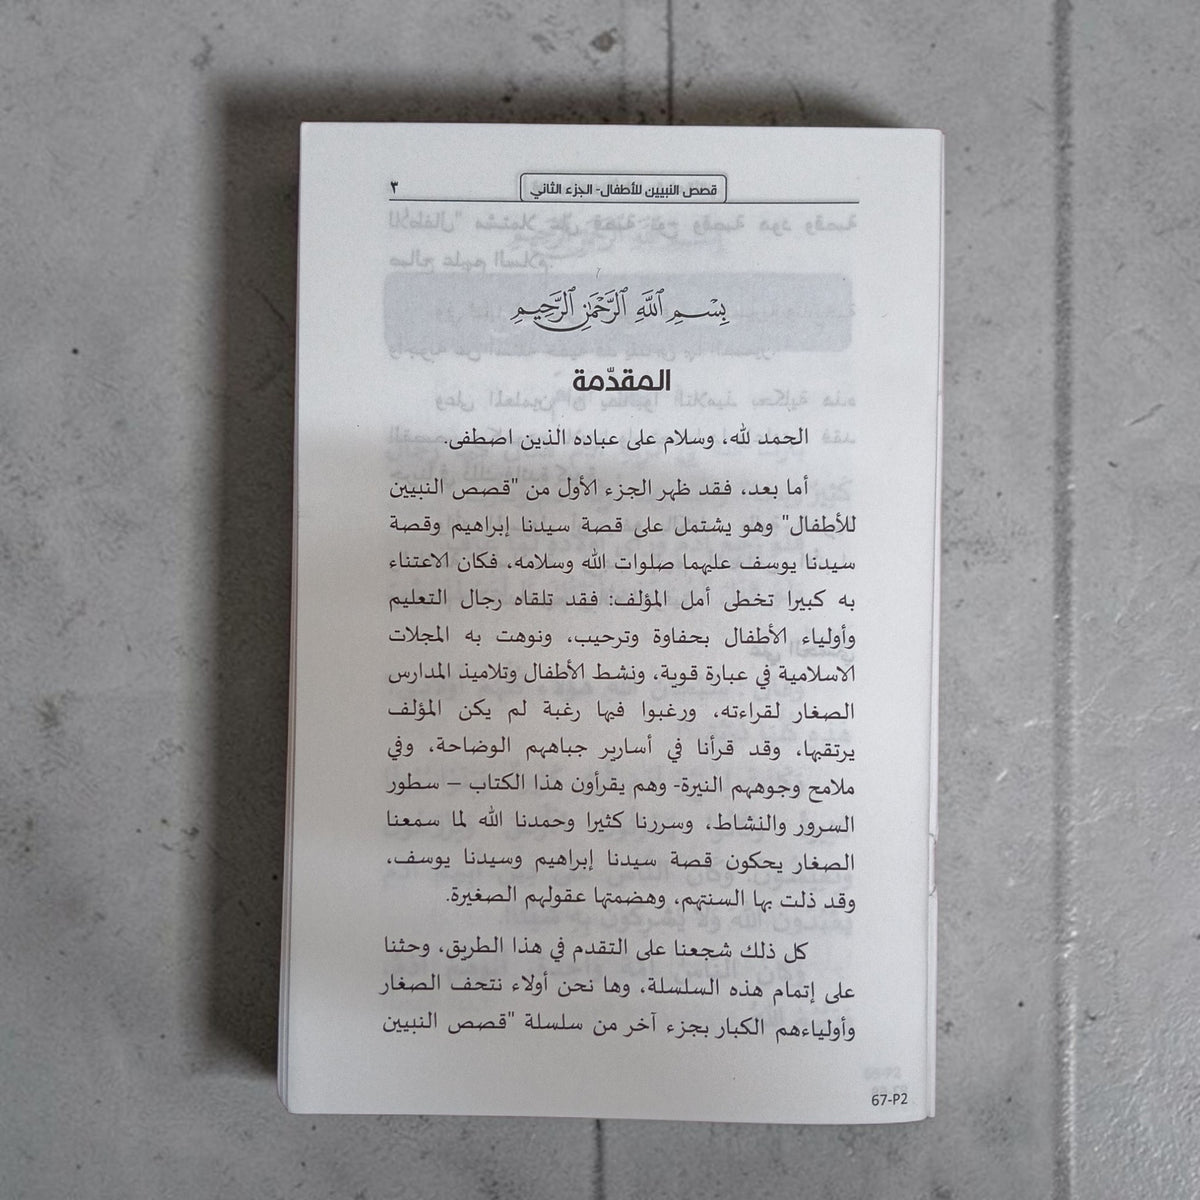 قصص النبيين للأطفال- الجزء الثاني ٣
بِسْمِ اللَّهِ الرَّحْمَنِ الرَّحِيمِ
المقدّمة
الحمد لله، وسلام على عباده الذين اصطفى.
أما بعد، فقد ظهر الجزء الأول من "قصص النبيين
للأطفال" وهو يشتمل على قصة سيدنا إبراهيم وقصة
سيدنا يوسف عليهما صلوات الله وسلامه، فكان الاعتناء
به كبيرا تخطى أمل المؤلف: فقد تلقاه رجال التعليم
وأولياء الأطفال بحفاوة وترحيب، ونوهت به المجلات
الاسلامية في عبارة قوية، ونشط الأطفال وتلاميذ المدارس
الصغار لقراءته، ورغبوا فيها رغبة لم يكن المؤلف
يرتقبها، وقد قرأنا في أسارير جباههم الوضاحة، وفي
ملامح وجوههم النيرة- وهم يقرأون هذا الكتاب – سطور
السرور والنشاط، وسررنا كثيرا وحمدنا الله لما سمعنا
الصغار يحكون قصة سيدنا إبراهيم وسيدنا يوسف،
وقد ذلت بها السنتهم، وهضمتها عقولهم الصغيرة.
كل ذلك شجعنا على التقدم في هذا الطريق، وحثنا
على إتمام هذه السلسلة، وها نحن أولاء نتحف الصغار
وأولياءهم الكبار بجزء آخر من سلسلة "قصص النبيين
67-P2